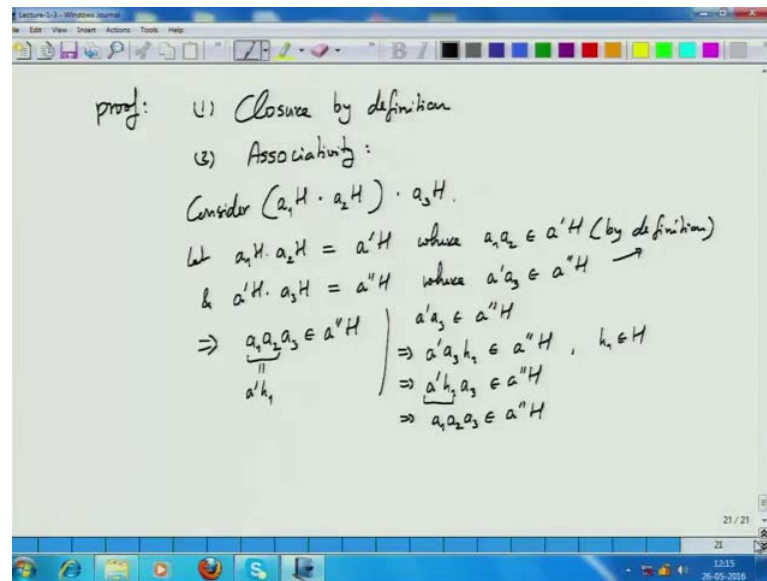 Lecture-1-3 - Windows Journal
Edit View Insert Actions Tools Help
proof: (1) Closure by definition
(2) Associativity:
Consider (a₁H · a₂H) · a₃H.
Let a₁H · a₂H = a'H where a₁a₂ ∈ a'H (by definition)
& a'H · a₃H = a"H where a'a₃ ∈ a"H →
⇒ a₁a₂a₃ ∈ a"H
॥
a'h₁
a'a₃ ∈ a"H
⇒ a'a₃h₁ ∈ a"H , h₁ ∈ H
⇒ a'h₁a₃ ∈ a"H
⇒ a₁a₂a₃ ∈ a"H
21 / 21
21
12:15
26-05-2016